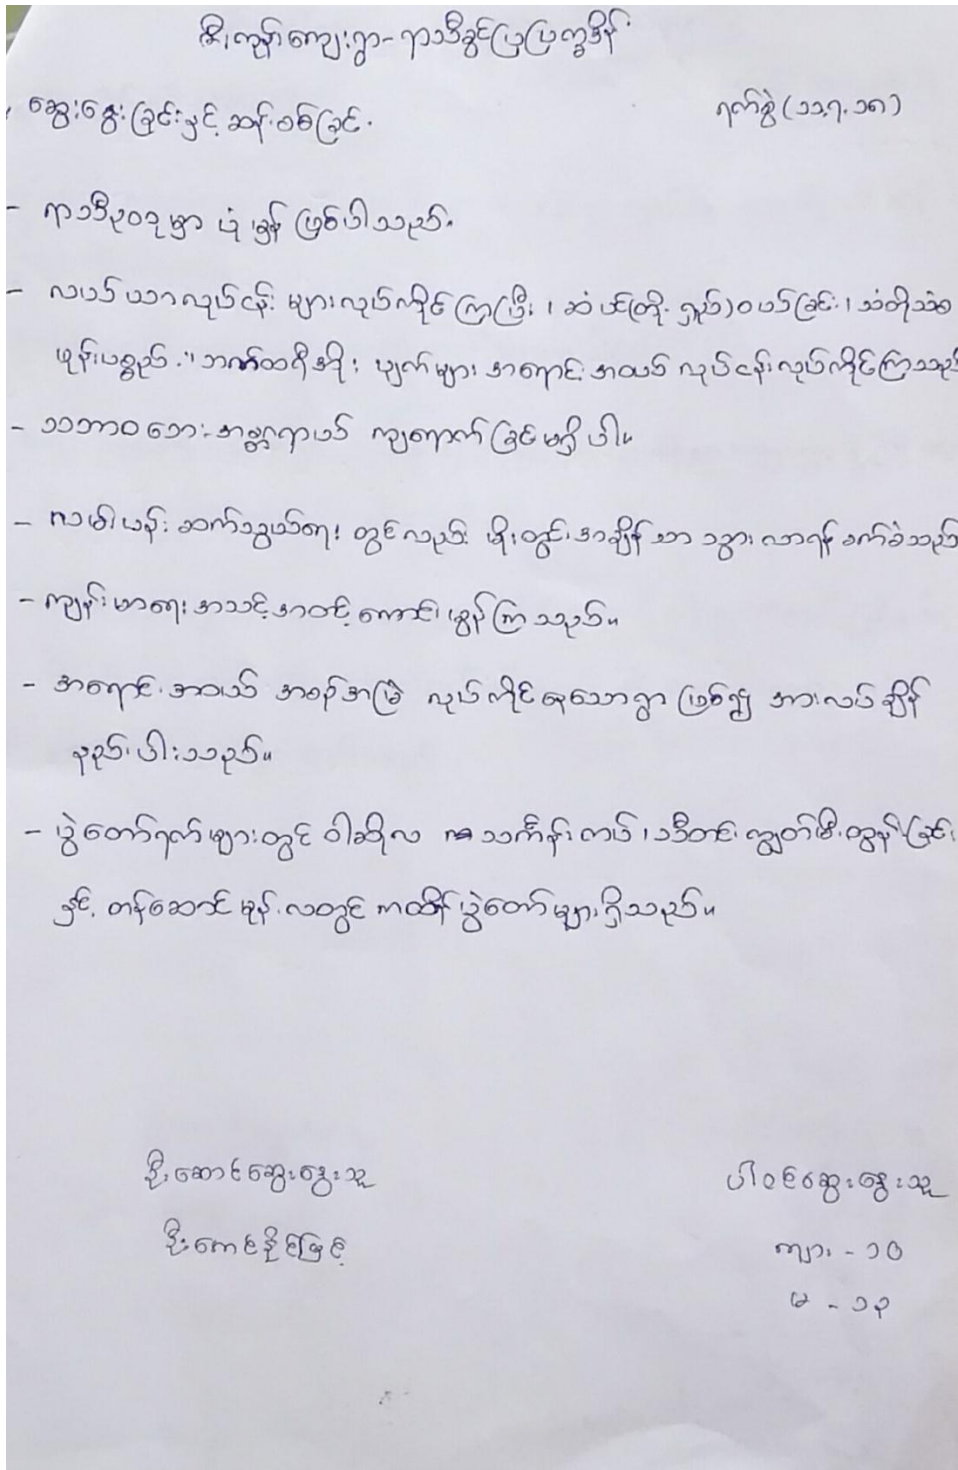 ဇီးကုန်းကျေးရွာ - ရာသီခွင်ပြပြက္ခဒိန်
ဆွေးနွေးခြင်းနှင့် ဆန်းစစ်ခြင်း
ရက်စွဲ (၁၁.၇.၁၈)
- ရာသီဥတုမှာ ပုံမှန် ဖြစ်ပါသည်။
- လယ်ယာလုပ်ငန်း များလုပ်ကိုင်ကြပြီး ၊ ဆံပင်(တို၊ ရှည်)ဝယ်ခြင်း ၊ သံတိုသံစ
ဖုန်းပစ္စည်း ၊ ဘထ္ထရီအိုး ပျက်များ အရောင်းအဝယ် လုပ်ငန်းလုပ်ကိုင်ကြသည်
- သဘာဝဘေးအန္တရာယ် ကျရောက်ခြင်းမရှိပါ။
- လမ်းပန်း ဆက်သွယ်ရေး တွင်လည်း မိုးတွင်းအချိန်သာ သွားလာရန် ခက်ခဲသည်
- ကျန်းမာရေးအသင့်အတင့်ကောင်းမွန်ကြသည်။
- အရောင်းအဝယ် အစဉ်အမြဲ လုပ်ကိုင်နေသောရွာ ဖြစ်၍ အားလပ်ချိန်
နည်းပါးသည်။
- ပွဲတော်ရက်များတွင် ဝါဆိုလ သင်္ကန်းကပ် ၊ သီတင်းကျွတ်မီးထွန်းခြင်း
နှင့် တန်ဆောင်မုန်းလတွင် ကထိန်ပွဲတော်များရှိသည်။
ဦးဆောင်ဆွေးနွေးသူ
ပါဝင်ဆွေးနွေးသူ
ဦးကောင်းခိုင်မြင့်
ကျား - ၁၀
မ - ၁၃